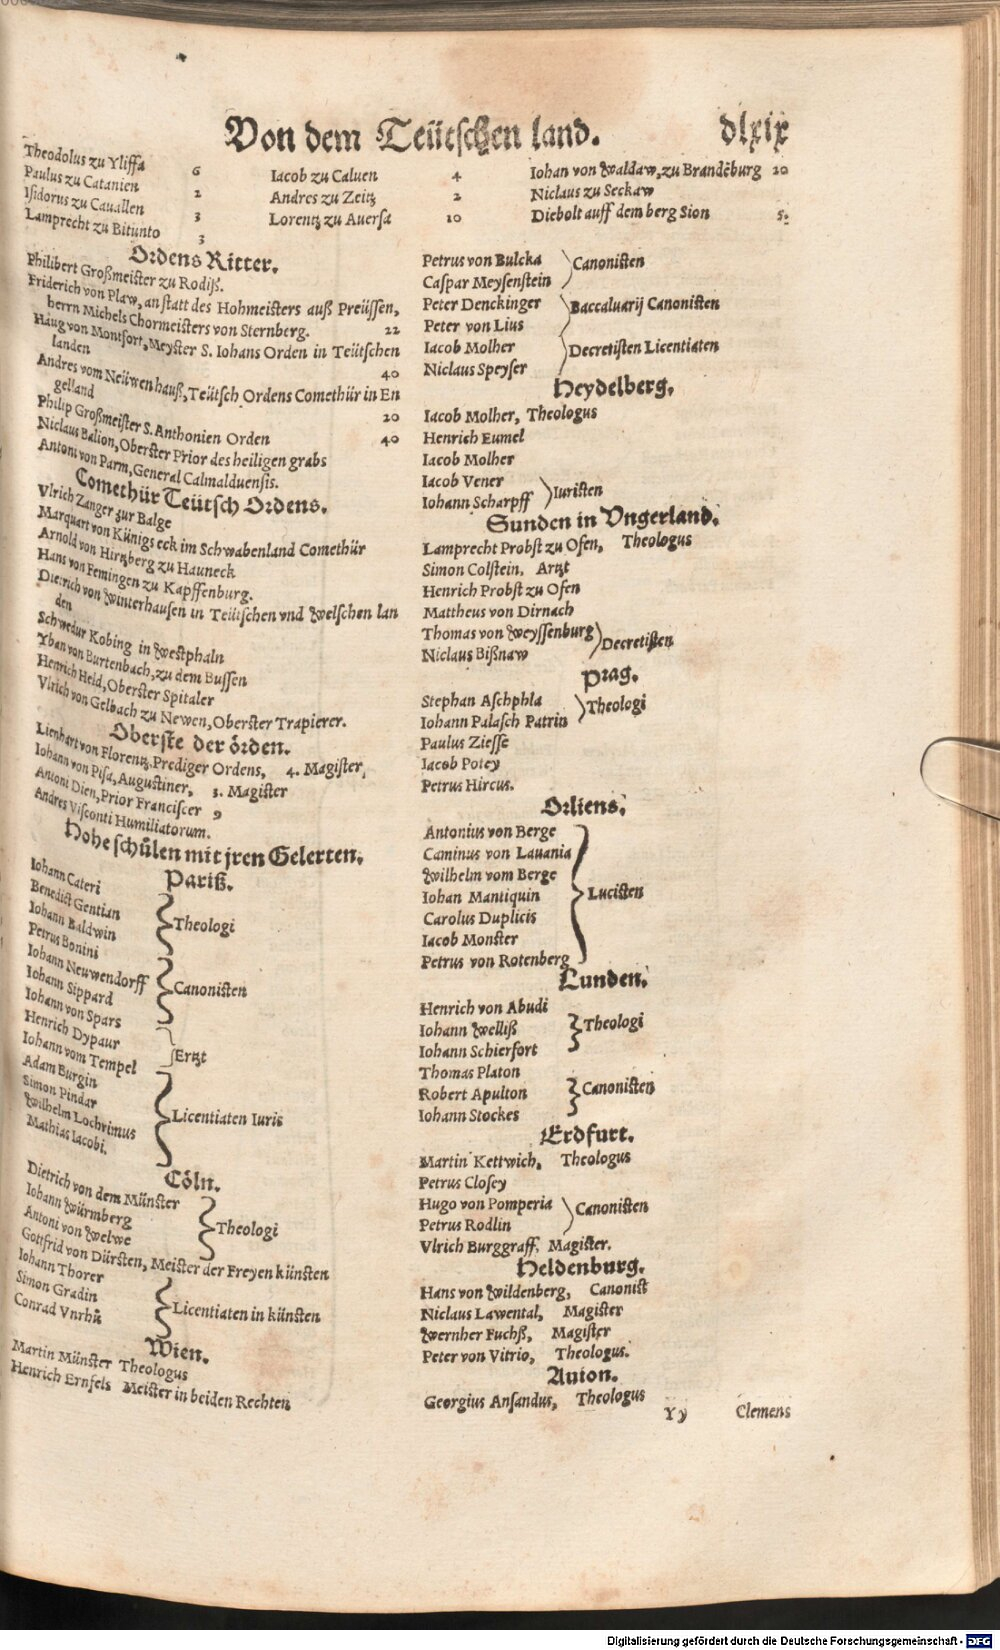 Von dem Teütschen land. dlxix
Theodolus zu Yliffa 6
Paulus zu Catanien 2
Isidorus zu Cauallen 3
Lamprecht zu Bitunto 3
Iacob zu Caluen 4
Andres zu Zeitz 2
Lorentz zu Auersa 10
Iohan von Waldaw, zu Brandēburg 20
Niclaus zu Seckaw
Diebolt auff dem berg Sion 5.
Ordens Ritter.
Philibert Großmeister zu Rodiß.
Friderich von Plaw, an statt des Hohmeisters auß Preüssen,
herrn Michels Chormeisters von Sternberg. 22
Haug von Montfort, Meyster S. Iohans Orden in Teütschen
landen 40
Andres vom Neüwenhauß, Teütsch Ordens Comethür in En
gelland 20
Philip Großmeister S. Anthonien Orden 40
Niclaus Balion, Oberster Prior des heiligen grabs
Antoni von Parm, General Calmalduensis.
Comethür Teütsch Ordens.
Vlrich Zanger zur Balge
Marquart von Künigseck im Schwabenland Comethür
Arnold von Hirtzberg zu Hauneck
Hans von Femingen zu Kapffenburg.
Dietrich von Winterhausen in Teütschen vnd Welschen lan
den
Schwedur Kobing in Westphaln
Yban von Burtenbach, zu dem Bussen
Henrich Held, Oberster Spitaler
Vlrich von Gelbach zu Newen, Oberster Trapierer.
Oberste der örden.
Lienhart von Florentz, Prediger Ordens, 4. Magister,
Iohann von Pisa, Augustiner, 3. Magister
Antoni Dien, Prior Franciscer 9
Andres Visconti Humiliatorum.
Hohe schůlen mit jren Gelerten.
Pariß.
Iohann Cateri
Benedict Gentian
Iohann Baldwin
Petrus Bonini
Theologi
Iohann Neuwendorff
Iohann Sippard
Iohann von Spars
Canonisten
Henrich Dypaur
Iohann vom Tempel
Ertzt
Adam Burgin
Simon Pindar
Wilhelm Lochrimus
Mathias Iacobi.
Licentiaten Iuris
Cöln.
Dietrich von dem Münster
Iohann Würmberg
Antoni von Welwe
Theologi
Gottfrid von Dürsten, Meister der Freyen künsten
Iohann Thorer
Simon Gradin
Conrad Vnrhů
Licentiaten in künsten
Wien.
Martin Münster Theologus
Henrich Ernfels Meister in beiden Rechten
Petrus von Bulcka
Caspar Meysenstein
Canonisten
Peter Denckinger
Peter von Lius
Baccaluarij Canonisten
Iacob Molher
Niclaus Speyser
Decretisten Licentiaten
Heydelberg.
Iacob Molher, Theologus
Henrich Eumel
Iacob Molher
Iacob Vener
Iohann Scharpff
Iuristen
Sunden in Vngerland.
Lamprecht Probst zu Ofen, Theologus
Simon Colstein, Artzt
Henrich Probst zu Ofen
Mattheus von Dirnach
Thomas von Weyssenburg
Niclaus Bißnaw
Decretisten
Prag.
Stephan Aschphla
Iohann Palasch Patrin
Theologi
Paulus Ziesse
Iacob Potey
Petrus Hircus.
Orliens.
Antonius von Berge
Caminus von Lauania
Wilhelm vom Berge
Iohan Mantiquin
Carolus Duplicis
Iacob Monster
Petrus von Rotenberg
Lucisten
Lunden.
Henrich von Abudi
Iohann Welliß
Iohann Schierfort
Theologi
Thomas Platon
Robert Apulton
Iohann Stockes
Canonisten
Erdfurt.
Martin Kettwich, Theologus
Petrus Closey
Hugo von Pomperia
Petrus Rodlin
Canonisten
Vlrich Burggraff, Magister.
Heldenburg.
Hans von Wildenberg, Canonist
Niclaus Lawental, Magister
Wernher Fuchß, Magister
Peter von Vitrio, Theologus.
Auion.
Georgius Ansandus, Theologus
Yy Clemens
Digitalisierung gefördert durch die Deutsche Forschungsgemeinschaft - DFG